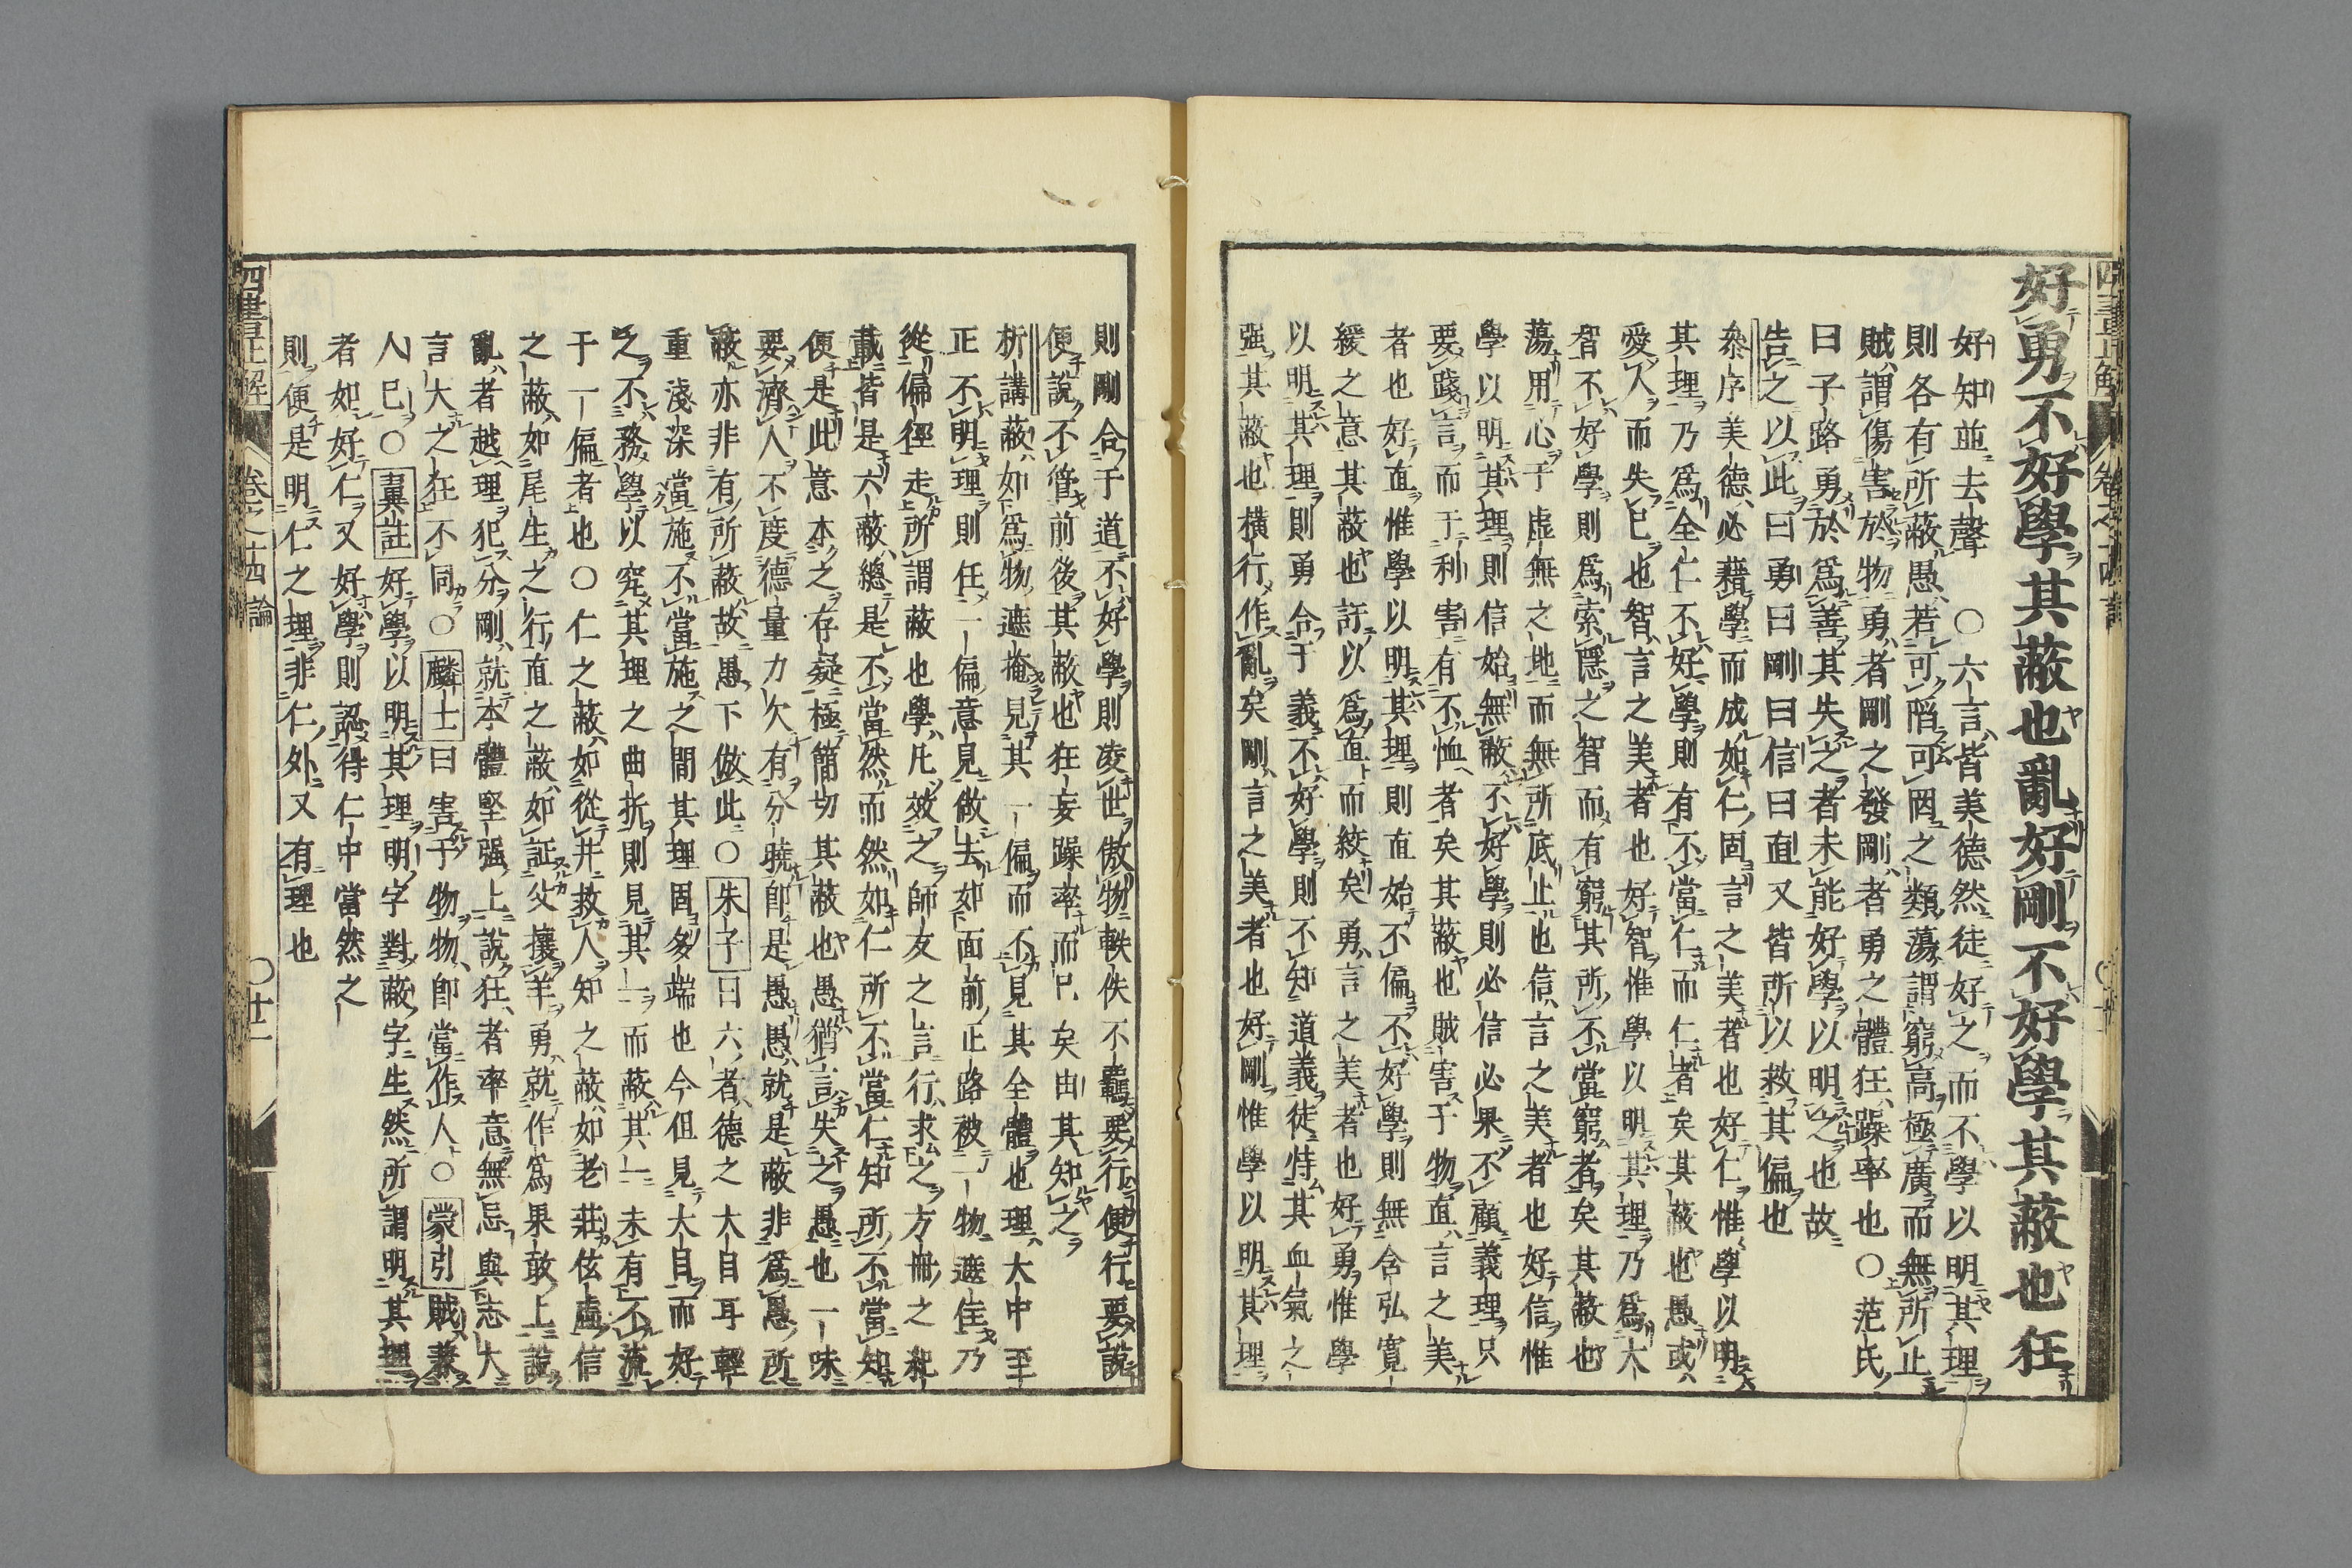 好勇不好學其蔽也亂好剛不好學其蔽也狂
好知並去聲 〇六言皆美德然徒好之而不學以明其理
則各有所蔽愚若可陷可罔之類蕩謂窮高極廣而無所止
賊謂傷害於物勇者剛之發剛者勇之體狂躁率也〇范氏
曰子路勇於爲善其失之者未能好學以明之也故
告之以此曰勇曰剛曰信曰直又皆所以救其偏也
參序美德必藉學而成如仁固言之美者也好仁惟學以明
其理乃爲全仁不好學則有不當仁而仁者矣其蔽也愚或
愛人而失己也智言之美者也好智惟學以明其理乃爲大
智不好學則爲索隱之智而有窮其所不當窮者矣其蔽也
蕩用心于虛無之地而無所底止也信言之美者也好信惟
學以明其理則信始無蔽不好學則必信必果不顧義理只
要踐言而于利害有不恤者矣其蔽也賊害于物直言之美
者也好直惟學以明其理則直始不偏不好學則無含弘寬
緩之意其蔽也訐以爲直而絞矣勇言之美者也好勇惟學
以明其理則勇合于義不好學則不知道義徒恃其血氣之
强其蔽也橫行作亂矣剛言之美者也好剛惟學以明其理
則剛合于道不好學則凌世傲物軼佚不羈要行便行要說
便說不管前後其蔽也狂妄躁率而已矣由其知之
析講蔽如爲物遮掩見其一偏而不見其全體也理大中至
正不明理則任一偏意見做去如面前正路被一物遮住乃
從偏徑走所謂蔽也學凡效之師友之言行求之方冊之紀
載皆是六蔽總是不當然而然如仁所不當仁知所不當知
便是此意本之存疑極簡切其蔽也愚猶言失之愚也一味
要濟人不度德量力欠有分曉卽是愚愚就是蔽非爲愚所
蔽亦非有所蔽故愚下倣此〇朱子曰六者德之大目耳輕
重淺深當施不當施之間其理固多端也今但見大目而好
之不務學以究其理之曲折則見其一而蔽其一未有不流
于一偏者也〇仁之蔽如從井救人知之蔽如老莊佉虛信
之蔽如尾生之行直之蔽如証父攘羊勇就作爲果敢上說
亂者越理犯分剛就本體堅强上說狂者率意無忌與志大
言大之狂不同〇麟士曰害于物物卽當作人〇蒙引賊兼
人己〇翼註好學以明其理明字對蔽字生然所謂明其理
者如好仁又好學則認得仁中當然之
則便是明仁之理非仁外又有理也
四書正解 卷之十四 論 〇廿二